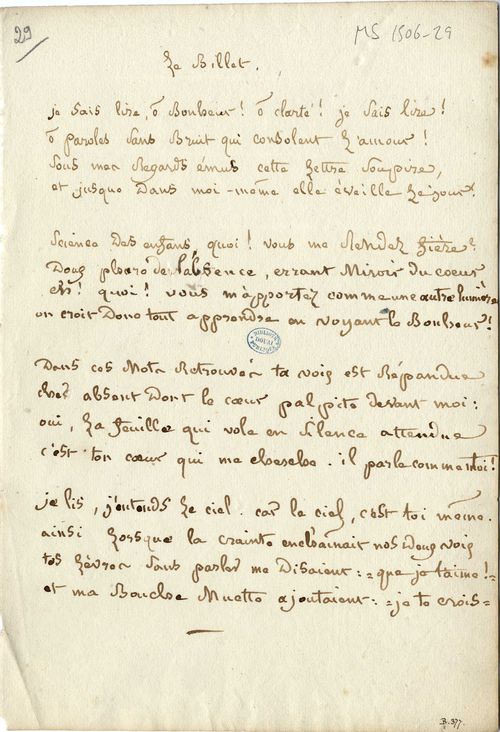 29
MS 1506-29
Le Billet.
je sais lire, ô Bonheur ! ô clarté ! je sais lire !
ô paroles sans Bruit qui consolent l'amour !
sous mes Regards émus cette lettre soupire,
et jusque Dans moi-même elle éveille le jour !
Science des enfans, quoi ! vous me Rendez fière ?
Doux de l'absence, errant Miroir du coeur
eh ! quoi ! vous m'apportez comme une autre lumière
on croit Donc tout apprendre en voyant le Bonheur !
BIBLIOTH. DOUAI PUBLIQUE
Dans ces Mots Retrouvés ta voix est Répandue
cher absent Dont le coeur palpite devant moi :
oui, la feuille qui vole en silence attendue
c'est ton coeur qui me cherche. il parle comme toi !
je lis, j'entends le ciel. car le ciel, c'est toi même.
ainsi lorsque la crainte enchaînait nos Deux voix
tes lèvres sans parler me Disaient : = que je t'aime ! =
et ma Bouche Muette ajoutait : = je te crois =
B.377.